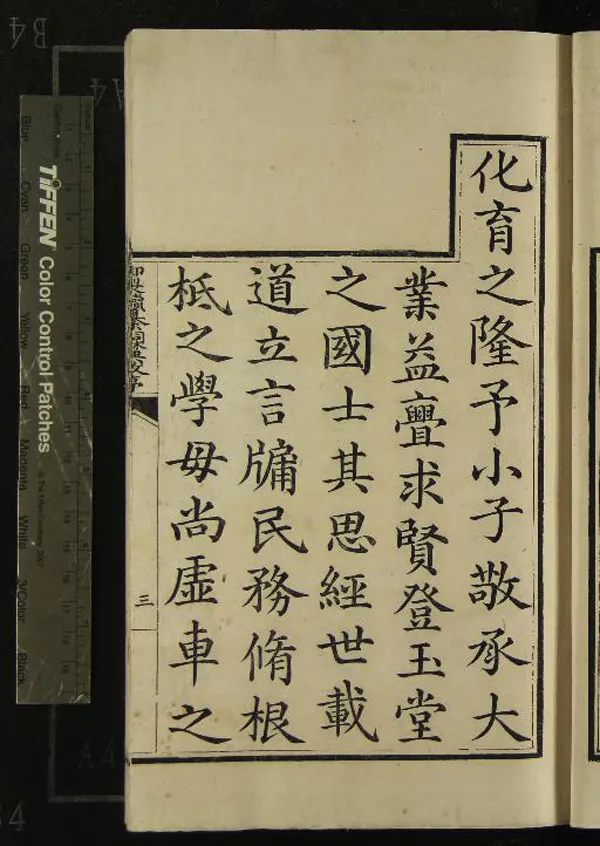 化育之隆予小子敬承大
業益亹求賢登玉堂
之國士其思經世載
道立言牖民務脩根
柢之學毋尚虛車之
三
TIFFEN Color Control Patches
Blue
Cyan
Green
Yellow
Red
Magenta
White
3/Color
Black
B4
A4